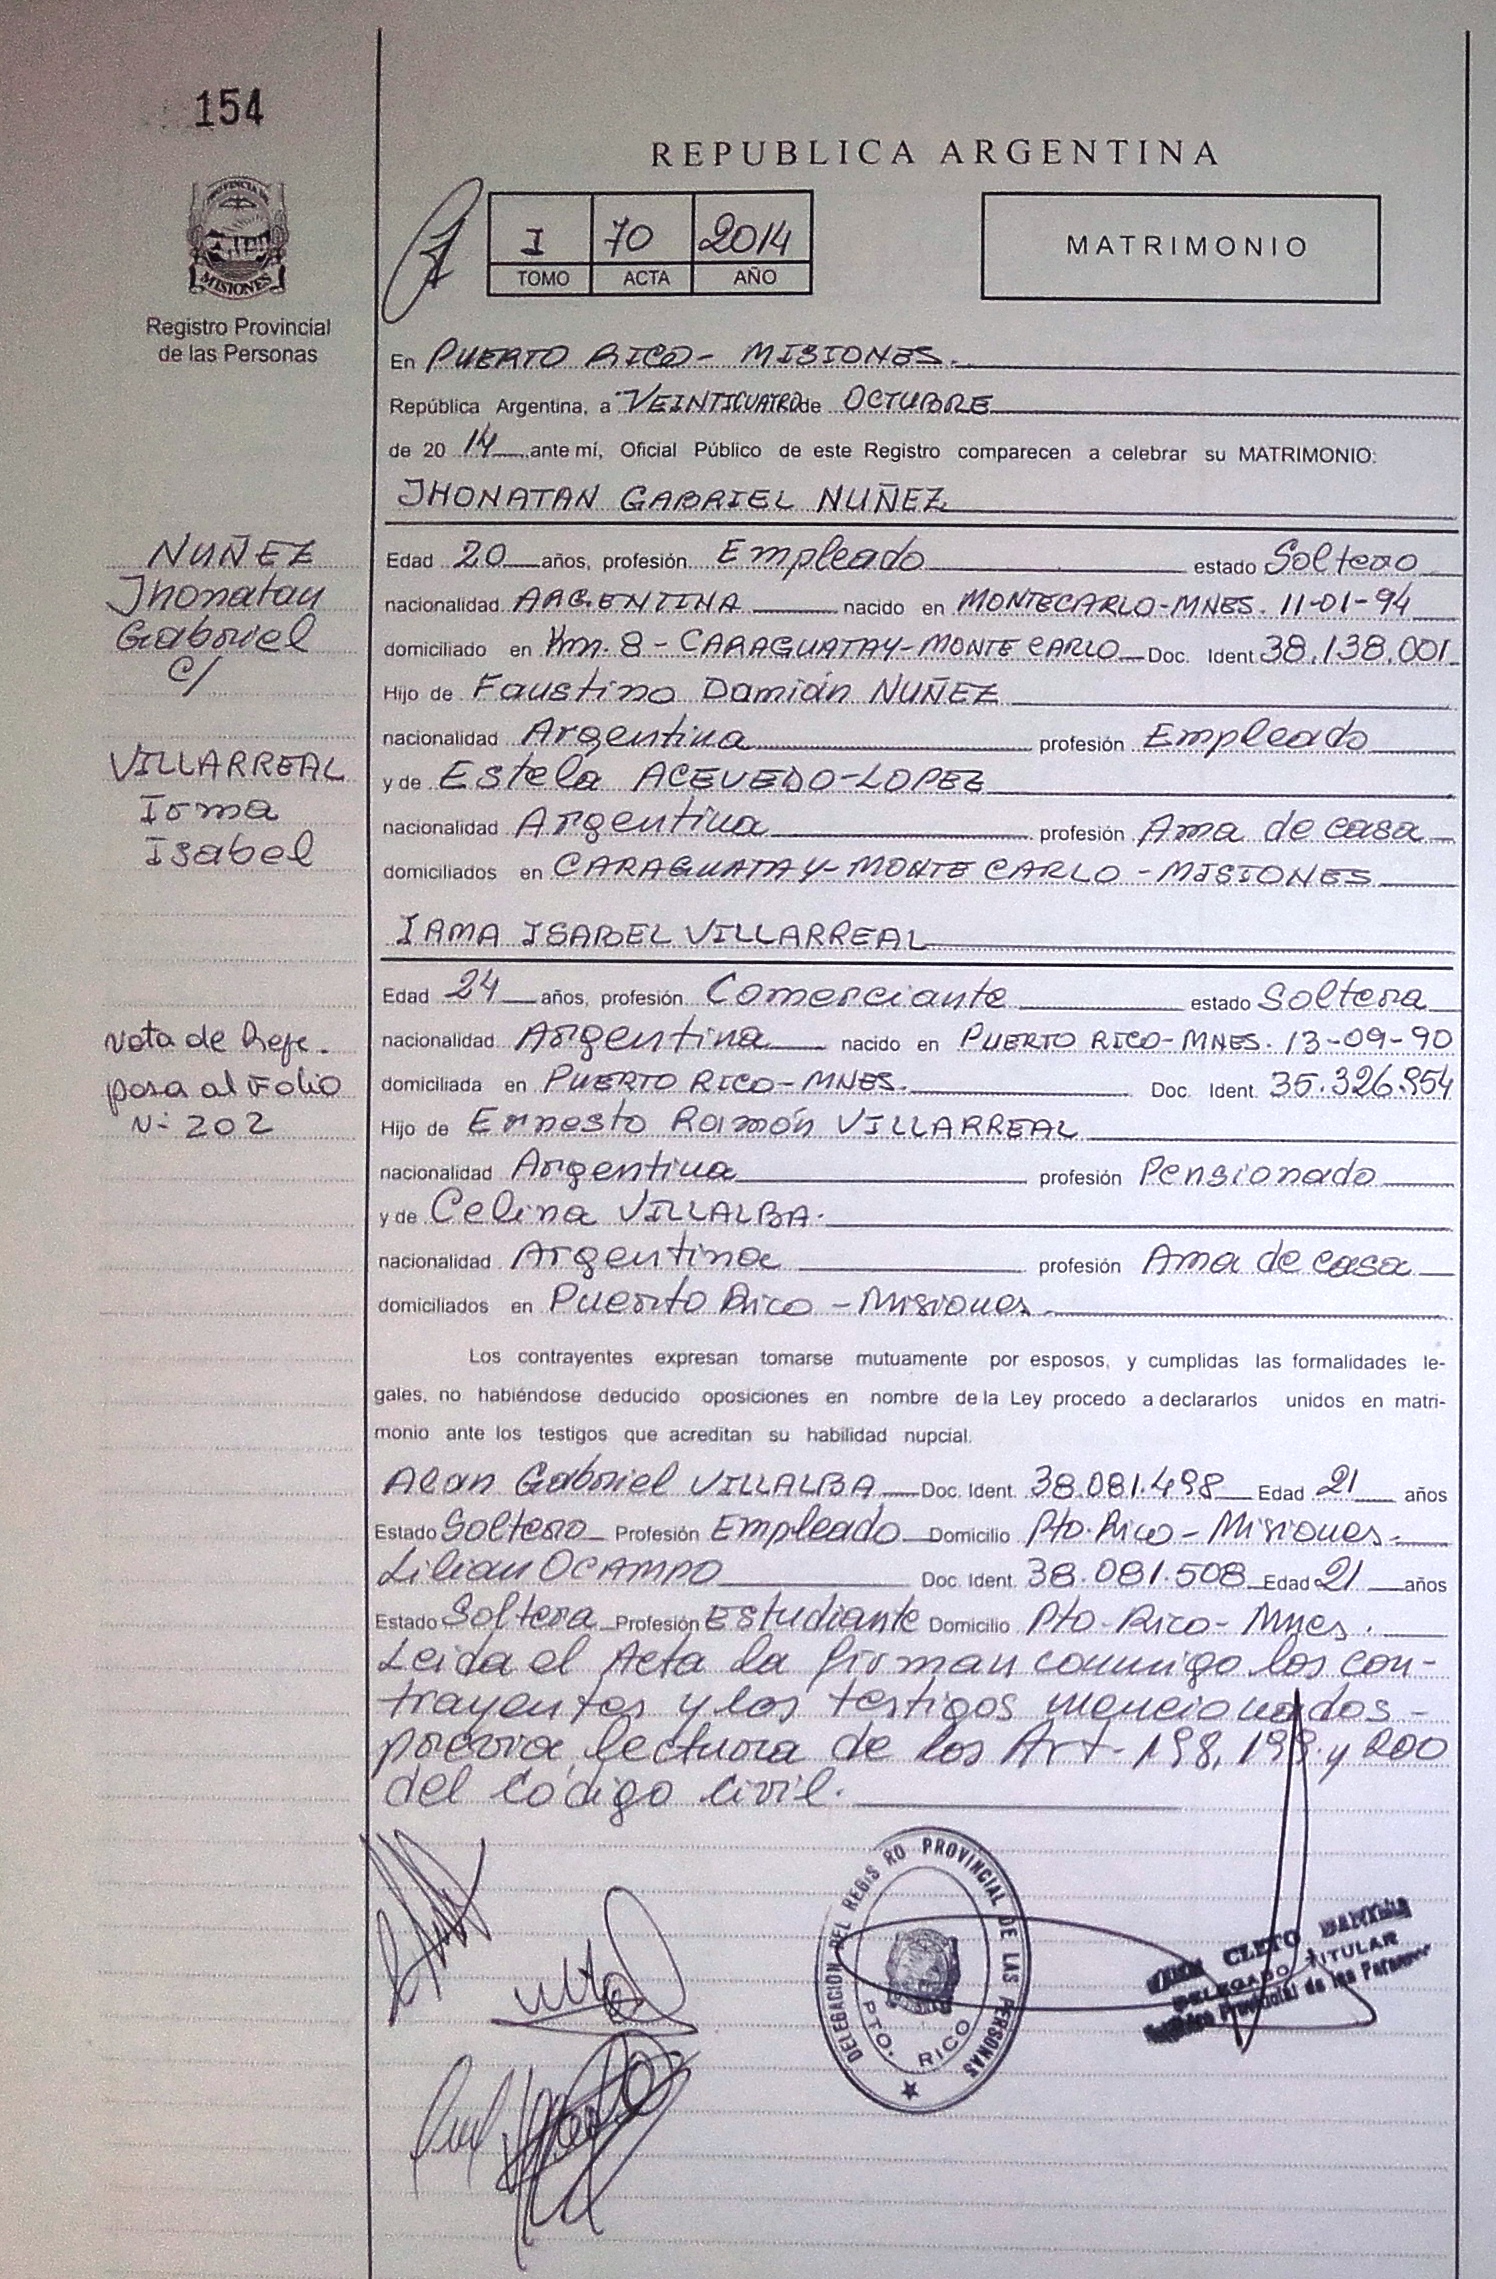 154
PROVINCIA DE
MISIONES
Registro Provincial
de las Personas
REPUBLICA ARGENTINA
I 70 2014
TOMO ACTA AÑO
MATRIMONIO
En PUERTO RICO- MISIONES.
República Argentina, a VEINTICUATRO de OCTUBRE
de 20 14 ante mí, Oficial Público de este Registro comparecen a celebrar su MATRIMONIO:
JHONATAN GABRIEL NUÑEZ
Edad 20 años, profesión Empleado estado Soltero
nacionalidad ARGENTINA nacido en MONTECARLO-MNES. 11-01-94
domiciliado en Km. 8 - CARAGUATAY-MONTE CARLO Doc. Ident. 38.138.001
Hijo de Faustino Damián NUÑEZ
nacionalidad Argentina profesión Empleado
y de Estela ACEVEDO-LOPEZ
nacionalidad Argentina profesión Ama de casa
domiciliados en CARAGUATAY-MONTE CARLO - MISIONES
IRMA ISABEL VILLARREAL
Edad 24 años, profesión Comerciante estado Soltera
nacionalidad Argentina nacido en PUERTO RICO-MNES. 13-09-90
domiciliada en PUERTO RICO-MNES. Doc. Ident. 35.326.854
Hijo de Ernesto Ramón VILLARREAL
nacionalidad Argentina profesión Pensionado
y de Celina VILLALBA.
nacionalidad Argentina profesión Ama de casa
domiciliados en Puerto Rico - Misiones.
Los contrayentes expresan tomarse mutuamente por esposos, y cumplidas las formalidades le-
gales, no habiéndose deducido oposiciones en nombre de la Ley procedo a declararlos unidos en matri-
monio ante los testigos que acreditan su habilidad nupcial.
Alan Gabriel VILLALBA Doc. Ident. 38.081.498 Edad 21 años
Estado Soltero Profesión Empleado Domicilio Pto. Rico - Misiones.
Lilian OCAMPO Doc. Ident. 38.081.508 Edad 21 años
Estado Soltera Profesión Estudiante Domicilio Pto- Rico- Mnes.
Leida el Acta la firman conmigo los con-
trayentes y los testigos mencionados -
previa lectura de los Art- 198, 199 y 200
del código civil.
NUÑEZ
Jhonatan
Gabriel
c/
VILLARREAL
Irma
Isabel
Nota de Refe.
pasa al Folio
N- 202
DELEGACION DEL REGISTRO PROVINCIAL DE LAS PERSONAS
PTO. RICO
CLETO
DELEGADO TITULAR
Registro Provincial de las Personas